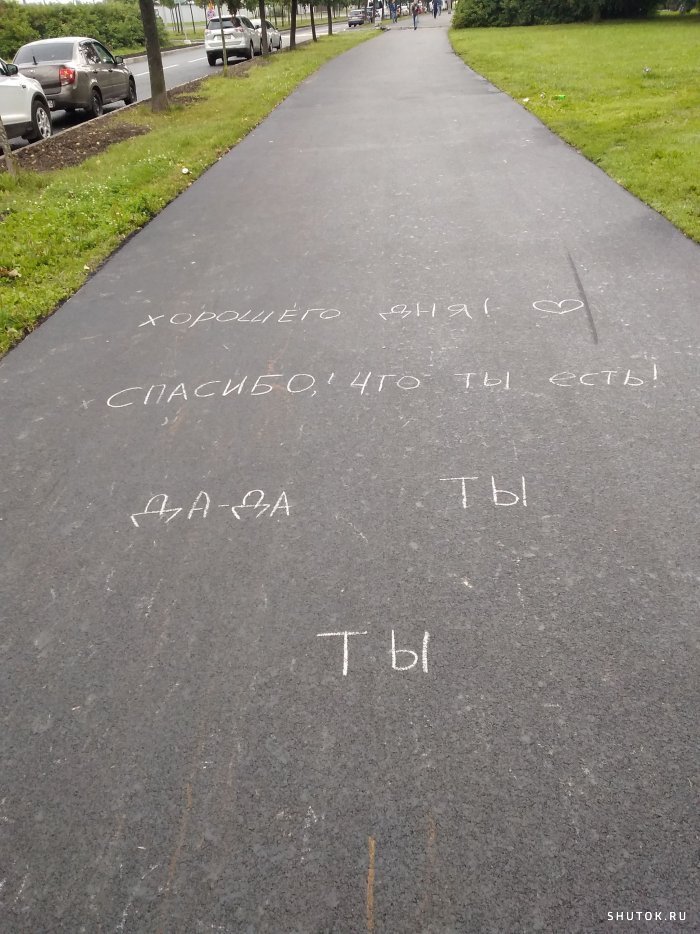 ХОРОШЕГО ДНЯ! ♡
СПАСИБО,! ЧТО ТЫ ЕСТЬ!
ДА-ДА ТЫ
ТЫ
SHUTOK.RU